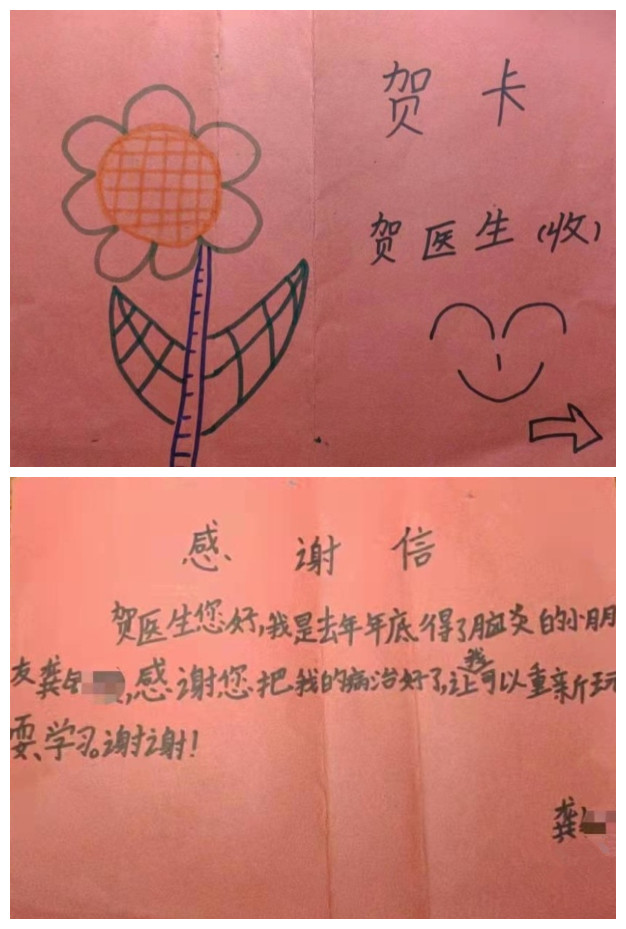 贺卡
贺医生(收)
感谢信
贺医生您好,我是去年年底得了脑炎的小朋
友龚,感谢您把我的病治好了,让我可以重新玩
耍、学习。谢谢!
龚